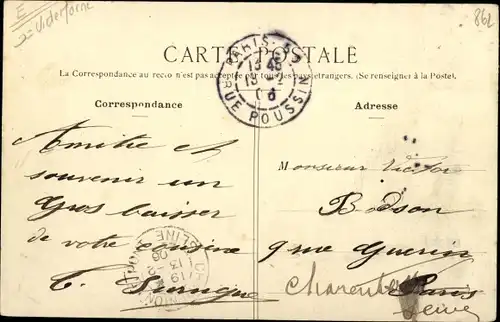 862
CARTE POSTALE
La Correspondance au recto n'est pas acceptée par tous les pays étrangers. (Se renseigner à la Poste).
PARIS
RUE POUSSIN
Correspondance
Adresse
Amitié et
souvenir un
Gros baiser
de votre cousine
Monsieur Victor
Bodson
9 rue Guerin
Charenton
Paris
Seine